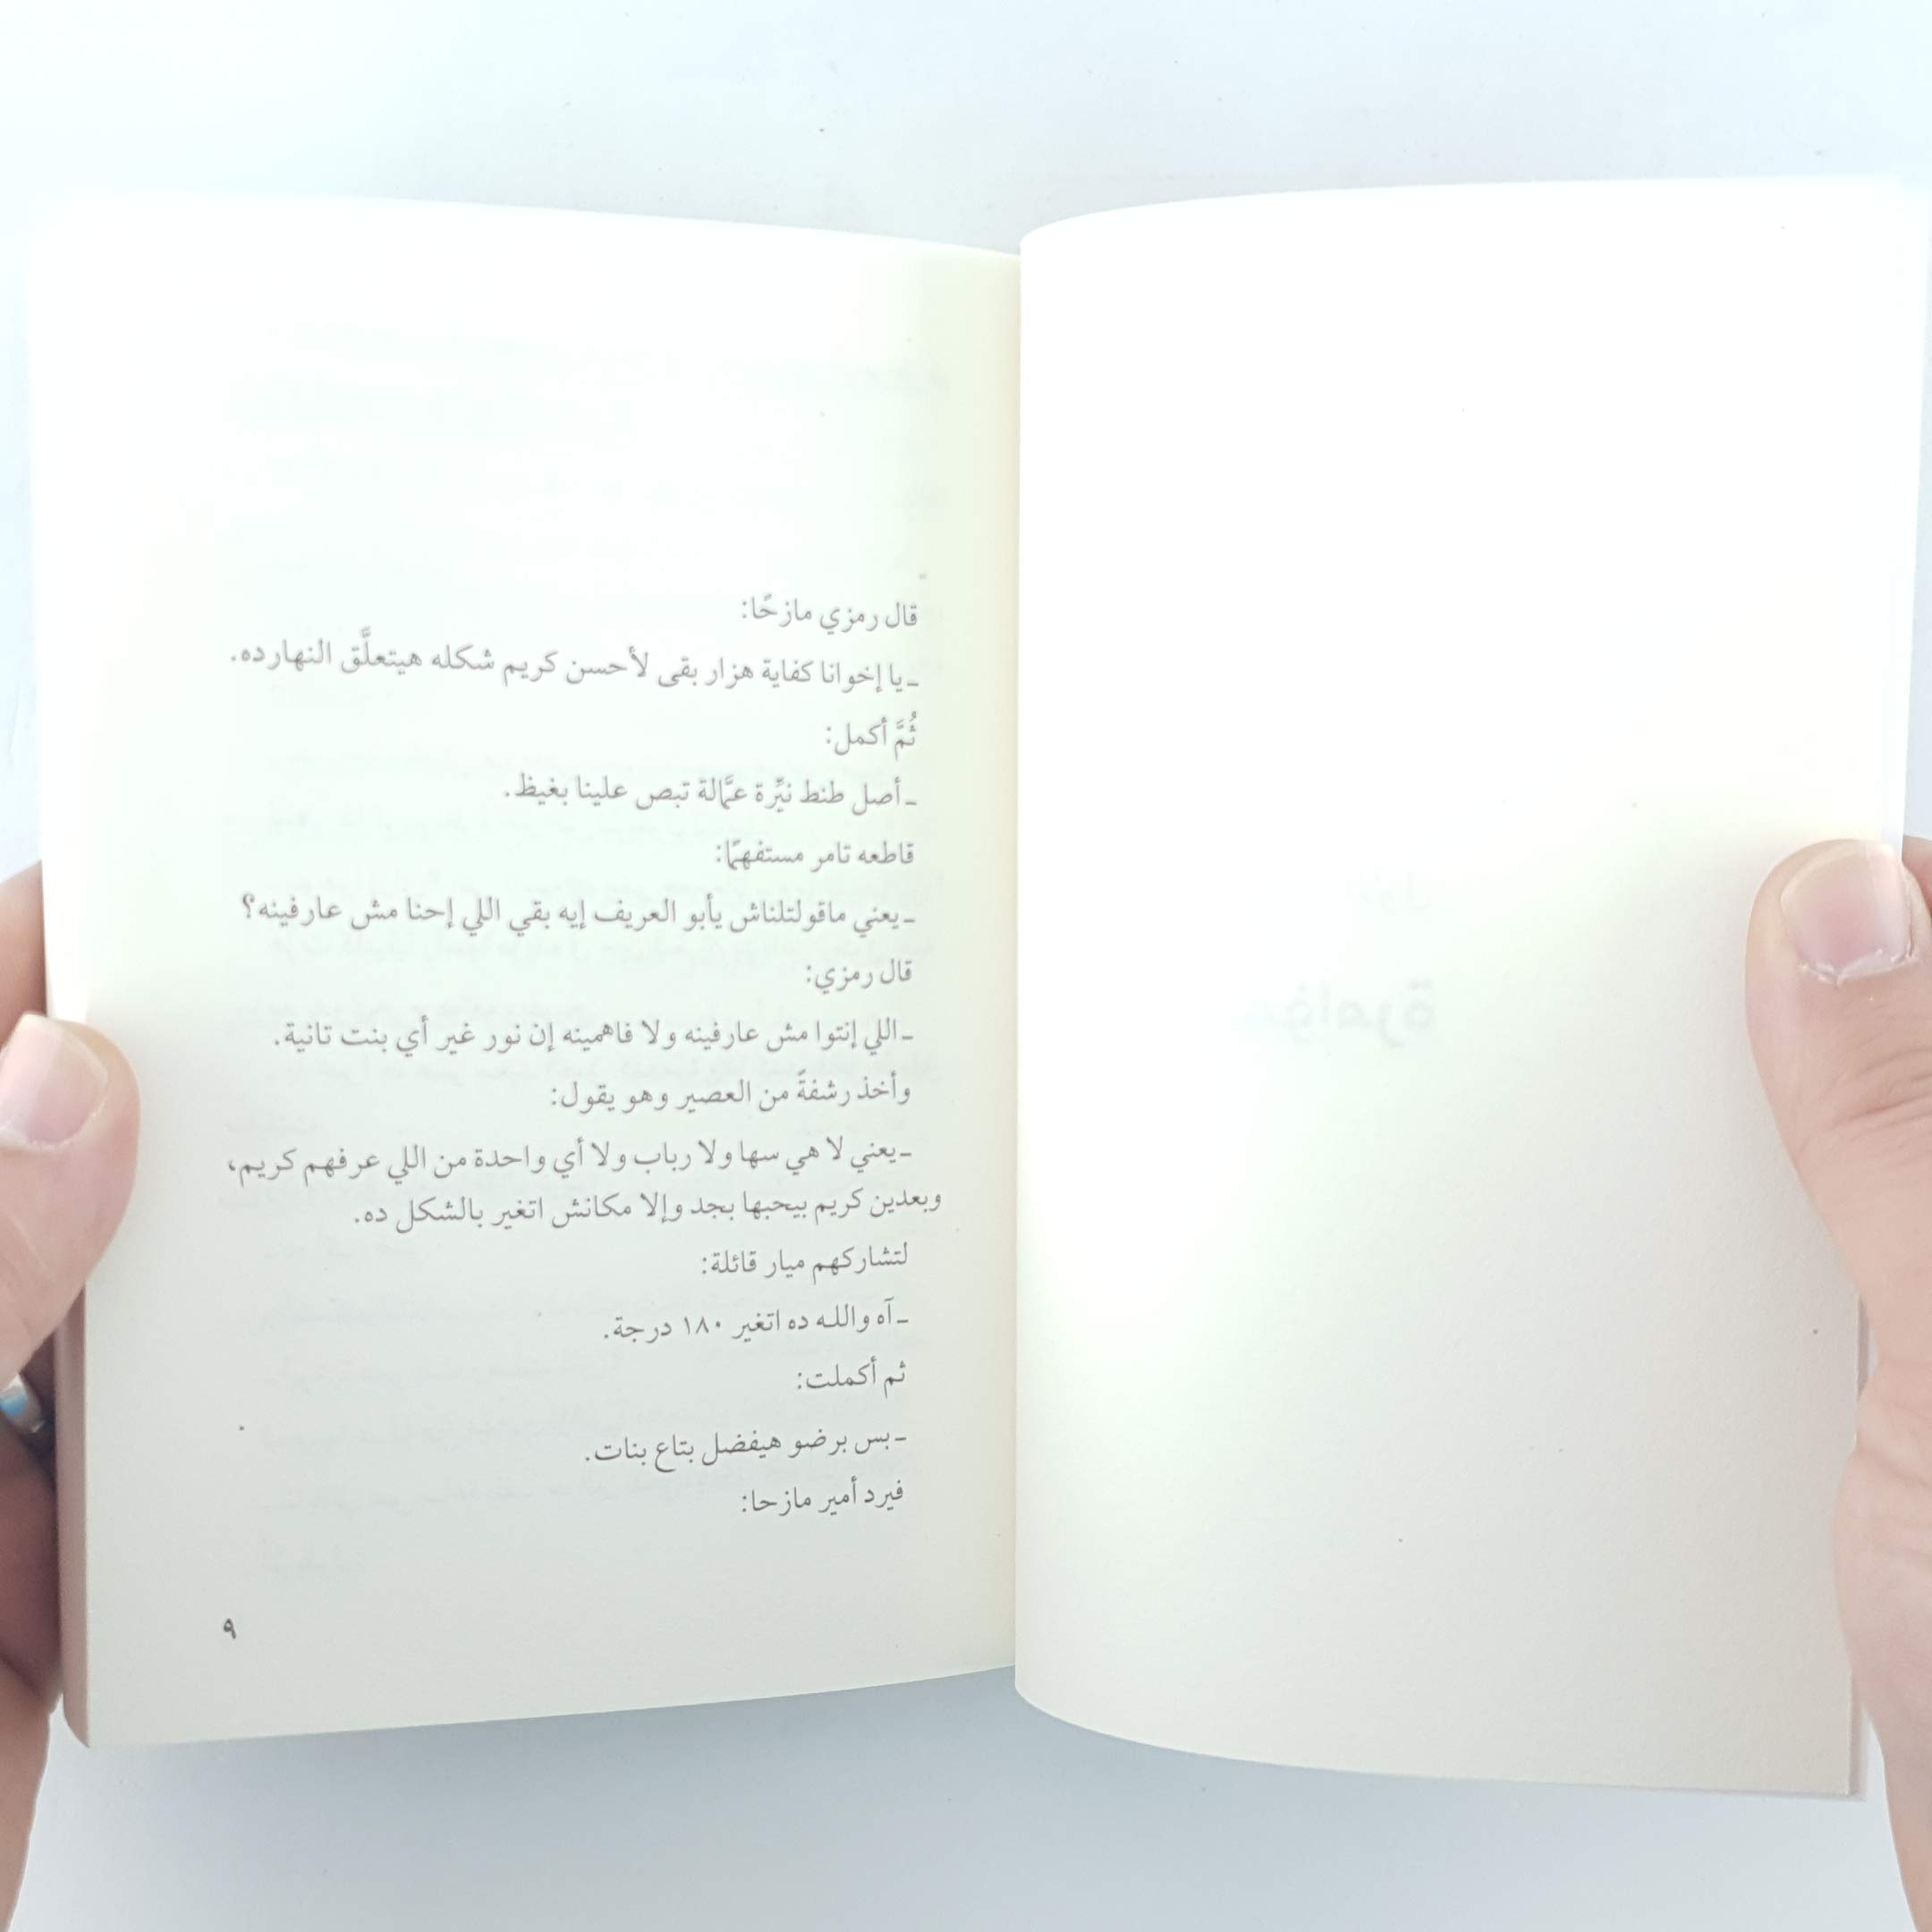 قال رمزي مازحًا:
ـ يا إخوانا كفاية هزار بقى لأحسن كريم شكله هيتعلَّق النهارده.
ثُمَّ أكمل:
ـ أصل طنط نيِّرة عمَّالة تبص علينا بغيظ.
قاطعه تامر مستفهمًا:
ـ يعني ماقولتلناش يأبو العريف إيه بقي اللي إحنا مش عارفينه؟
قال رمزي:
ـ اللي إنتوا مش عارفينه ولا فاهمينه إن نور غير أي بنت تانية.
وأخذ رشفةً من العصير وهو يقول:
ـ يعني لا هي سها ولا رباب ولا أي واحدة من اللي عرفهم كريم،
وبعدين كريم بيحبها بجد وإلا مكانش اتغير بالشكل ده.
لتشاركهم ميار قائلة:
ـ آه والله ده اتغير ١٨٠ درجة.
ثم أكملت:
ـ بس برضو هيفضل بتاع بنات.
فيرد أمير مازحا:
٩